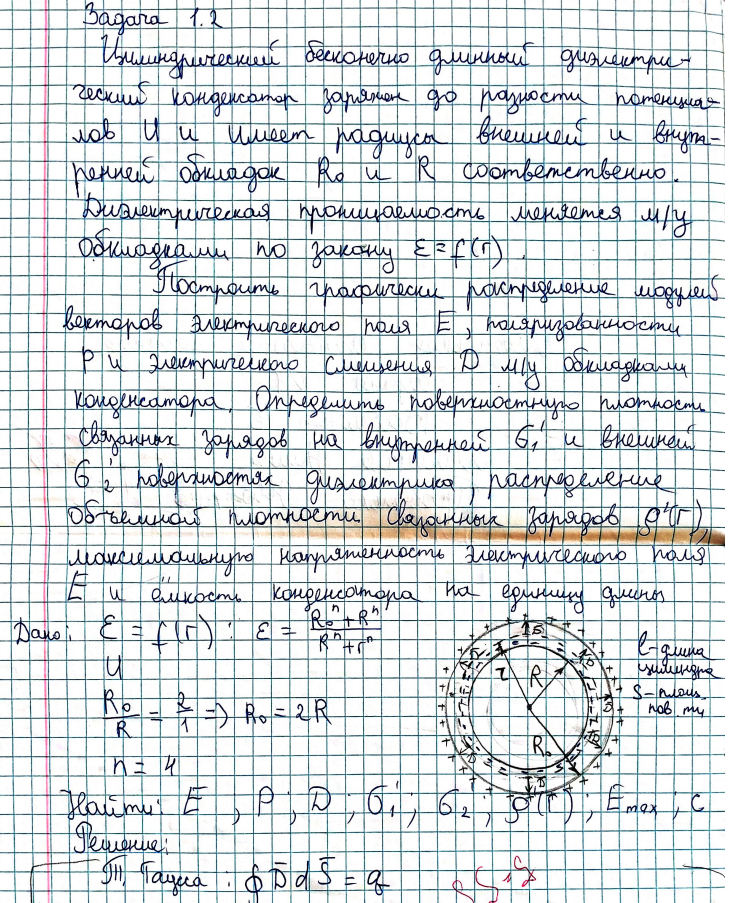 Задача 1.2
Цилиндрический бесконечно длинный диэлектри-
ческий конденсатор заряжен до разности потенциа-
лов U и имеет радиусы внешней и внут-
ренней обкладок R₀ и R соответственно.
Диэлектрическая проницаемость меняется м/у
обкладками по закону ε=f(r).
Построить графически распределение модулей
векторов электрического поля E, поляризованности
P и электрического смещения D м/у обкладками
конденсатора. Определить поверхностную плотность
связанных зарядов на внутренней σ₁' и внешней
σ₂' поверхностях диэлектрика, распределение
объемной плотности связанных зарядов ρ'(r),
максимальную напряженность электрического поля
E и ёмкость конденсатора на единицу длины
Дано: ε = f(r) : ε = (R₀ⁿ + Rⁿ)/(Rⁿ + rⁿ)
U
R₀/R = 2/1 => R₀ = 2R
n = 4
r
R
R₀
D
l-длина
цилиндра
S-площ.
пов-ти
Найти: E, P; D; σ₁'; σ₂; ρ'(r); Emax; c
Решение:
Т. Гаусса : ∮D̄dS̄ = q